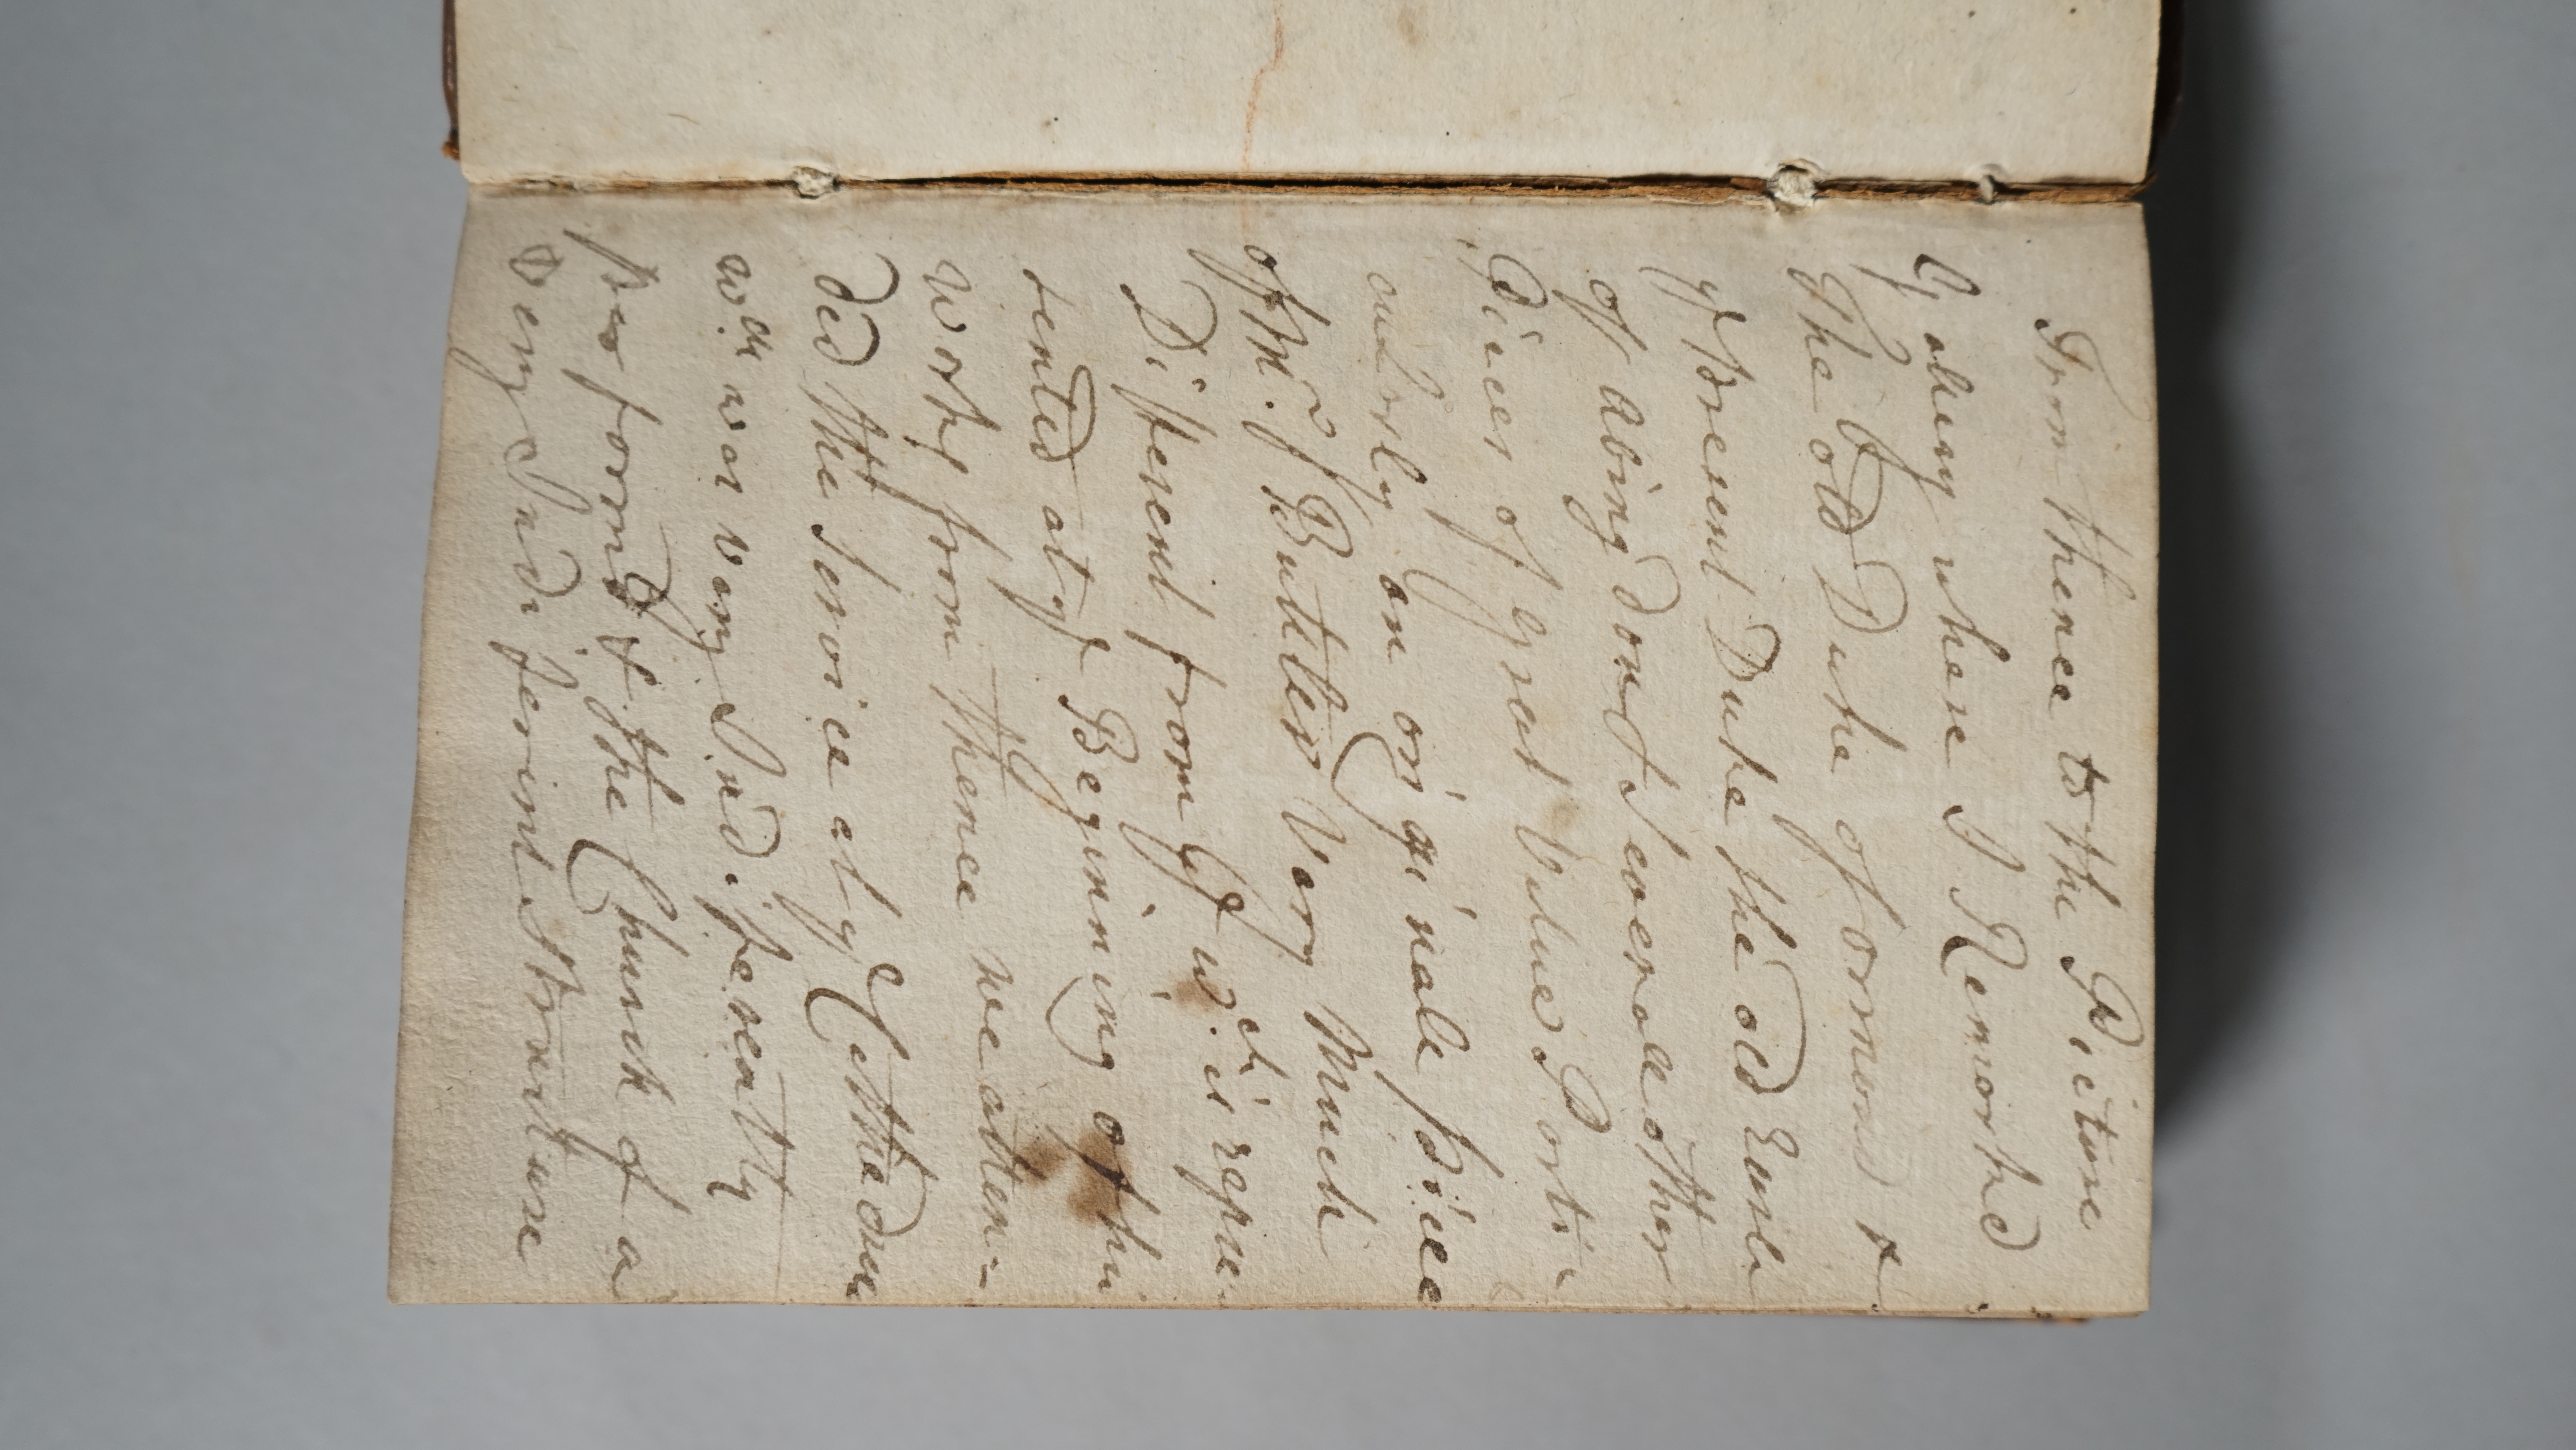 From thence to the Picture
Galery where I Remorked
The old Duke of ormond &
yᵉ Present Duke the old Earle
of Abingdon & Severale other
Pices of great Value Porti=
cularly an origi'nale Piece
of Mʳ. Buttler Vary Much
Different from yᵉ wᶜʰ is repre
sented at yᵉ Begining of his
Works from thence we atten=
ded the Service at yᵉ Cathedra
wᶜʰ was vary Indifferently
Performd & the Church of a
very Indifferint Structure